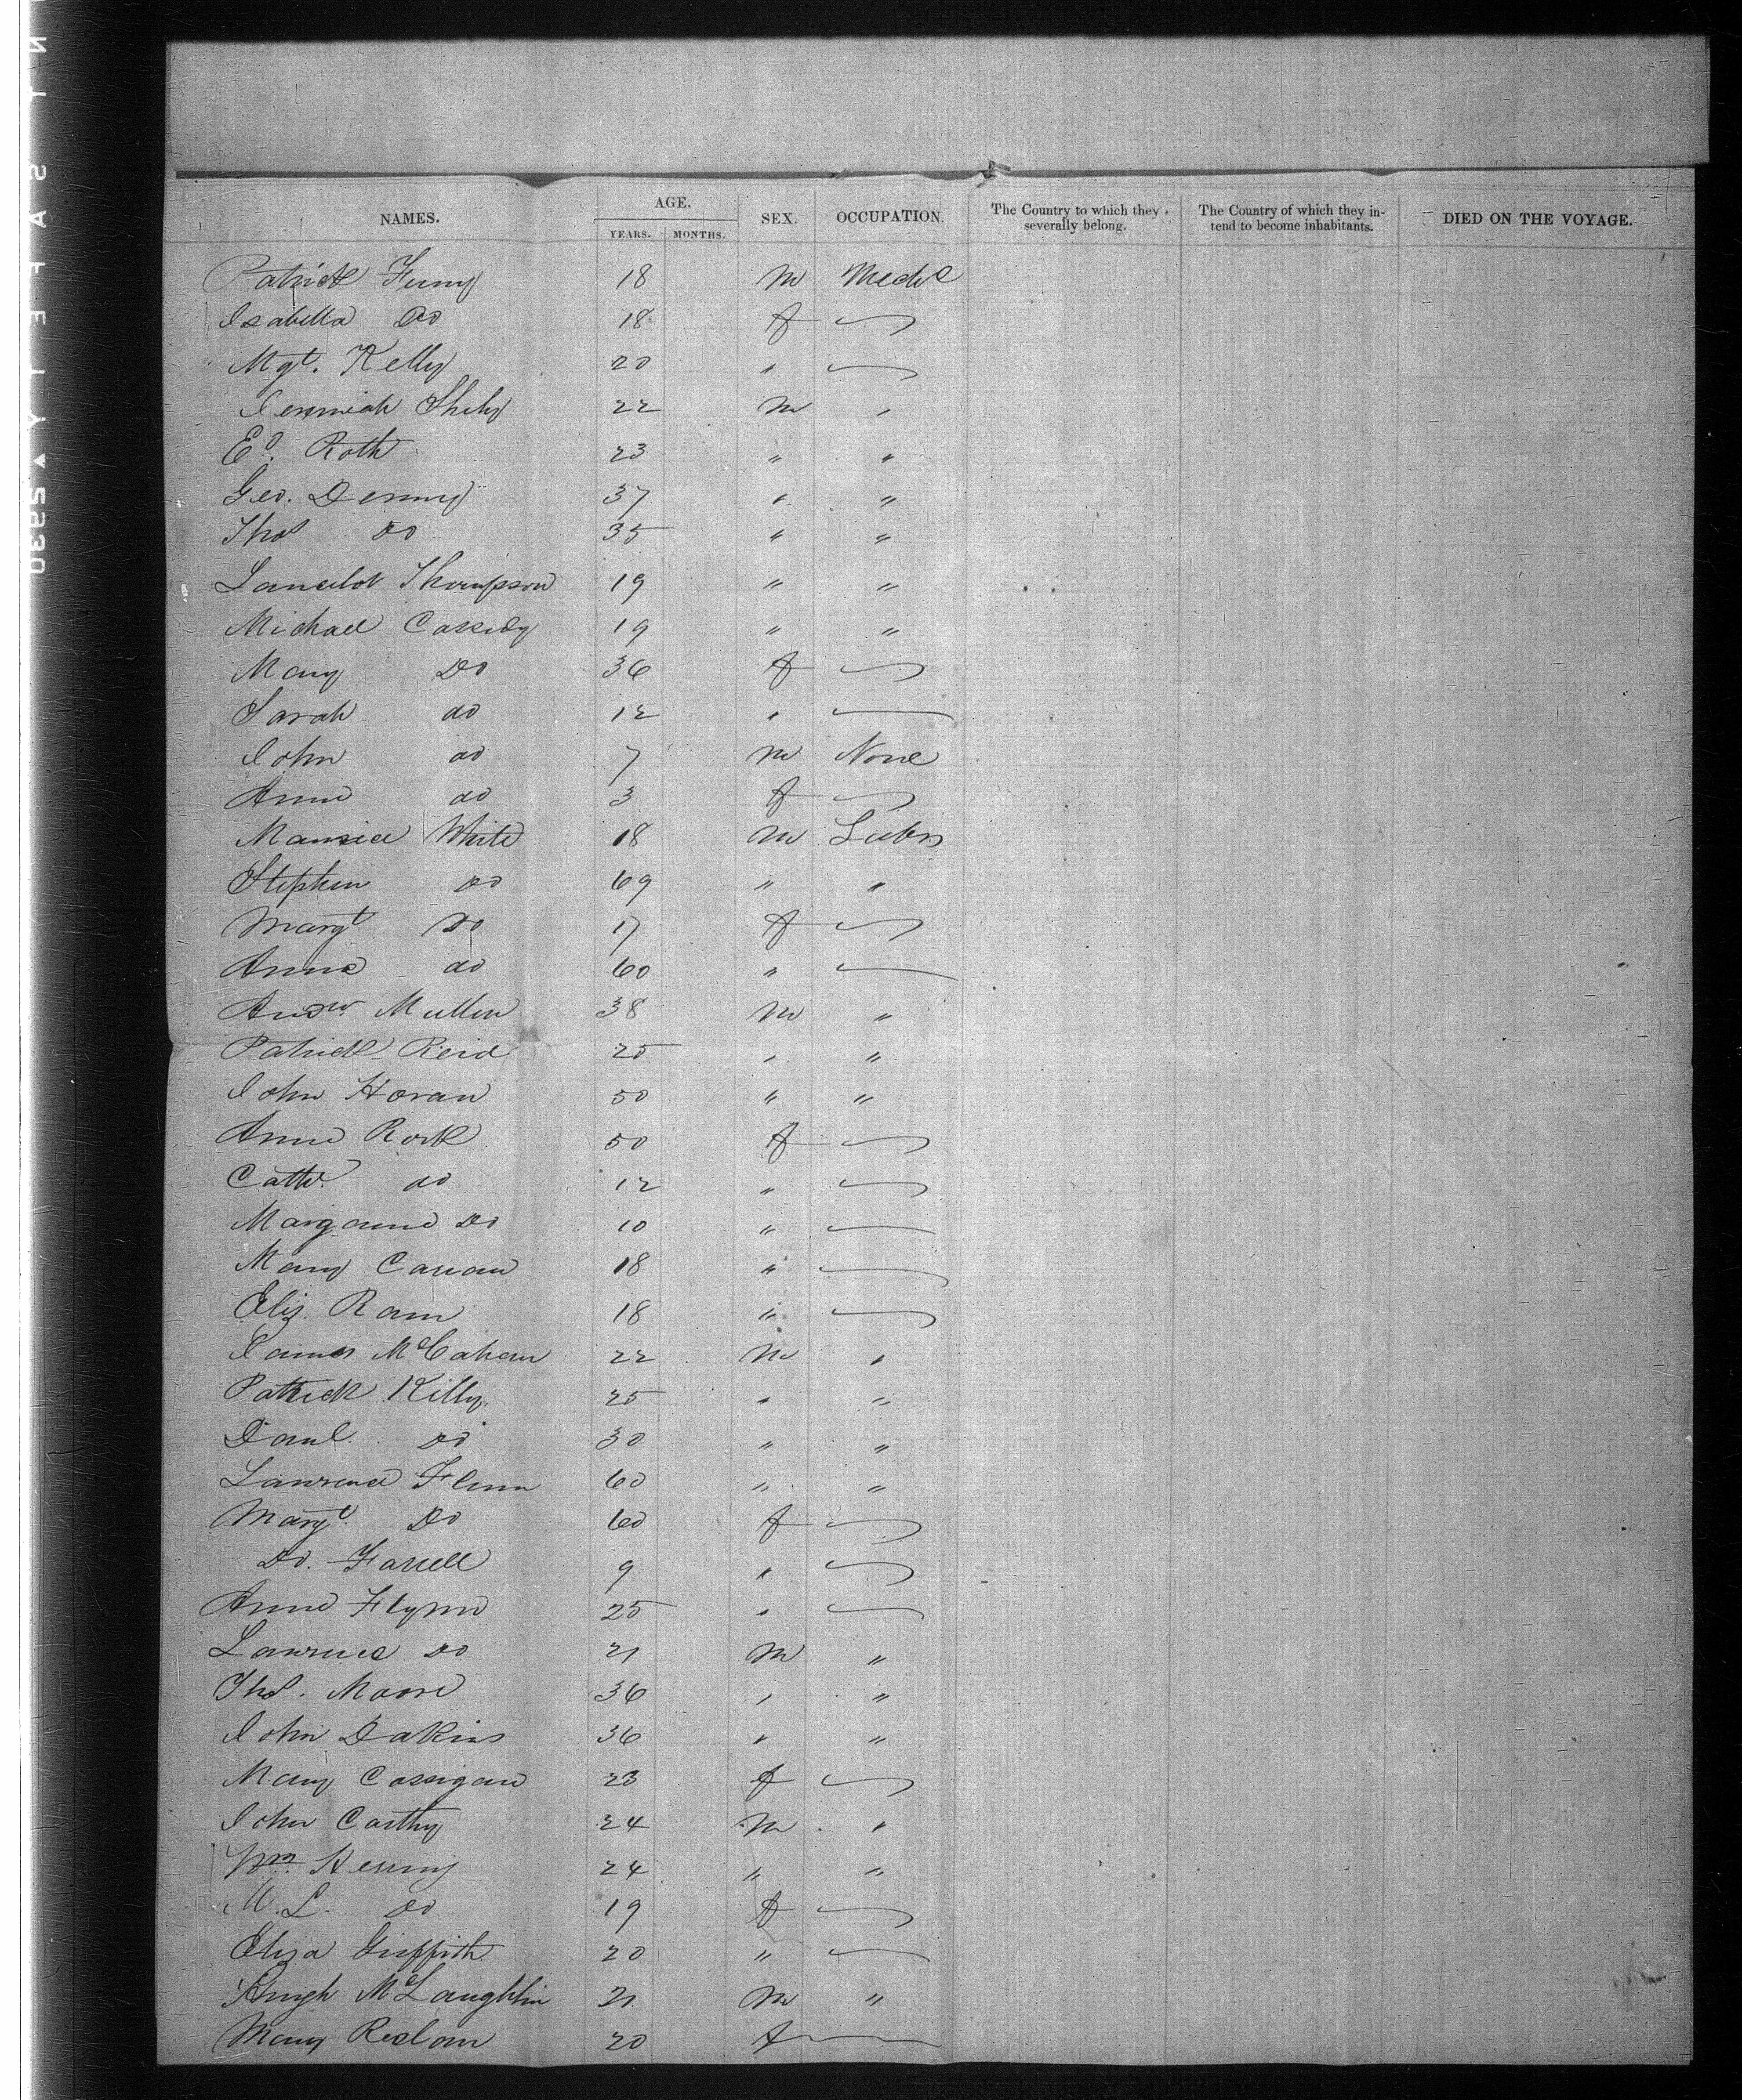 NAMES. AGE. SEX. OCCUPATION. The Country to which they severally belong. The Country of which they intend to become inhabitants. DIED ON THE VOYAGE.
YEARS. MONTHS.
Patrick 18 m Mechc
Isabella Do 18 f
Mgt. Kelly 20 "
Jeremiah Shehy 22 m "
Ed. Roth 23 " "
Geo. Denny 37 " "
Thos Do 35 " "
Lancelot Thompson 19 " "
Michael Cassidy 19 " "
Mary Do 36 f
Sarah do 12 "
John do 7 m None
Anne do 3 f
Maurice White 18 m Labr
Stephen Do 69 " "
Margt Do 17 f
Anne do 60 "
Andw. Mullen 38 m "
Patrick Reid 25 " "
John Horan 50 " "
Anne Rork 50 f
Cathe. do 12 "
Marganne Do 10 "
Mary 18 "
Eliz. 18 "
James McCahan 22 m "
Patrick Killy 25 " "
Danl. Do 30 " "
Lawrence Flinn 60 " "
Margt. Do 60 f
Do. Farrell 9 "
Anne Flynn 25 "
Lawrence Do 21 m "
Thos. Moore 36 " "
John Dakins 36 " "
Mary Corrigan 23 f
John Carthy 24 m "
Wm. 24 " "
M. L. Do 19 f
Eliza Griffith 20 "
Hugh McLaughlin 21 m "
Mary 20 f